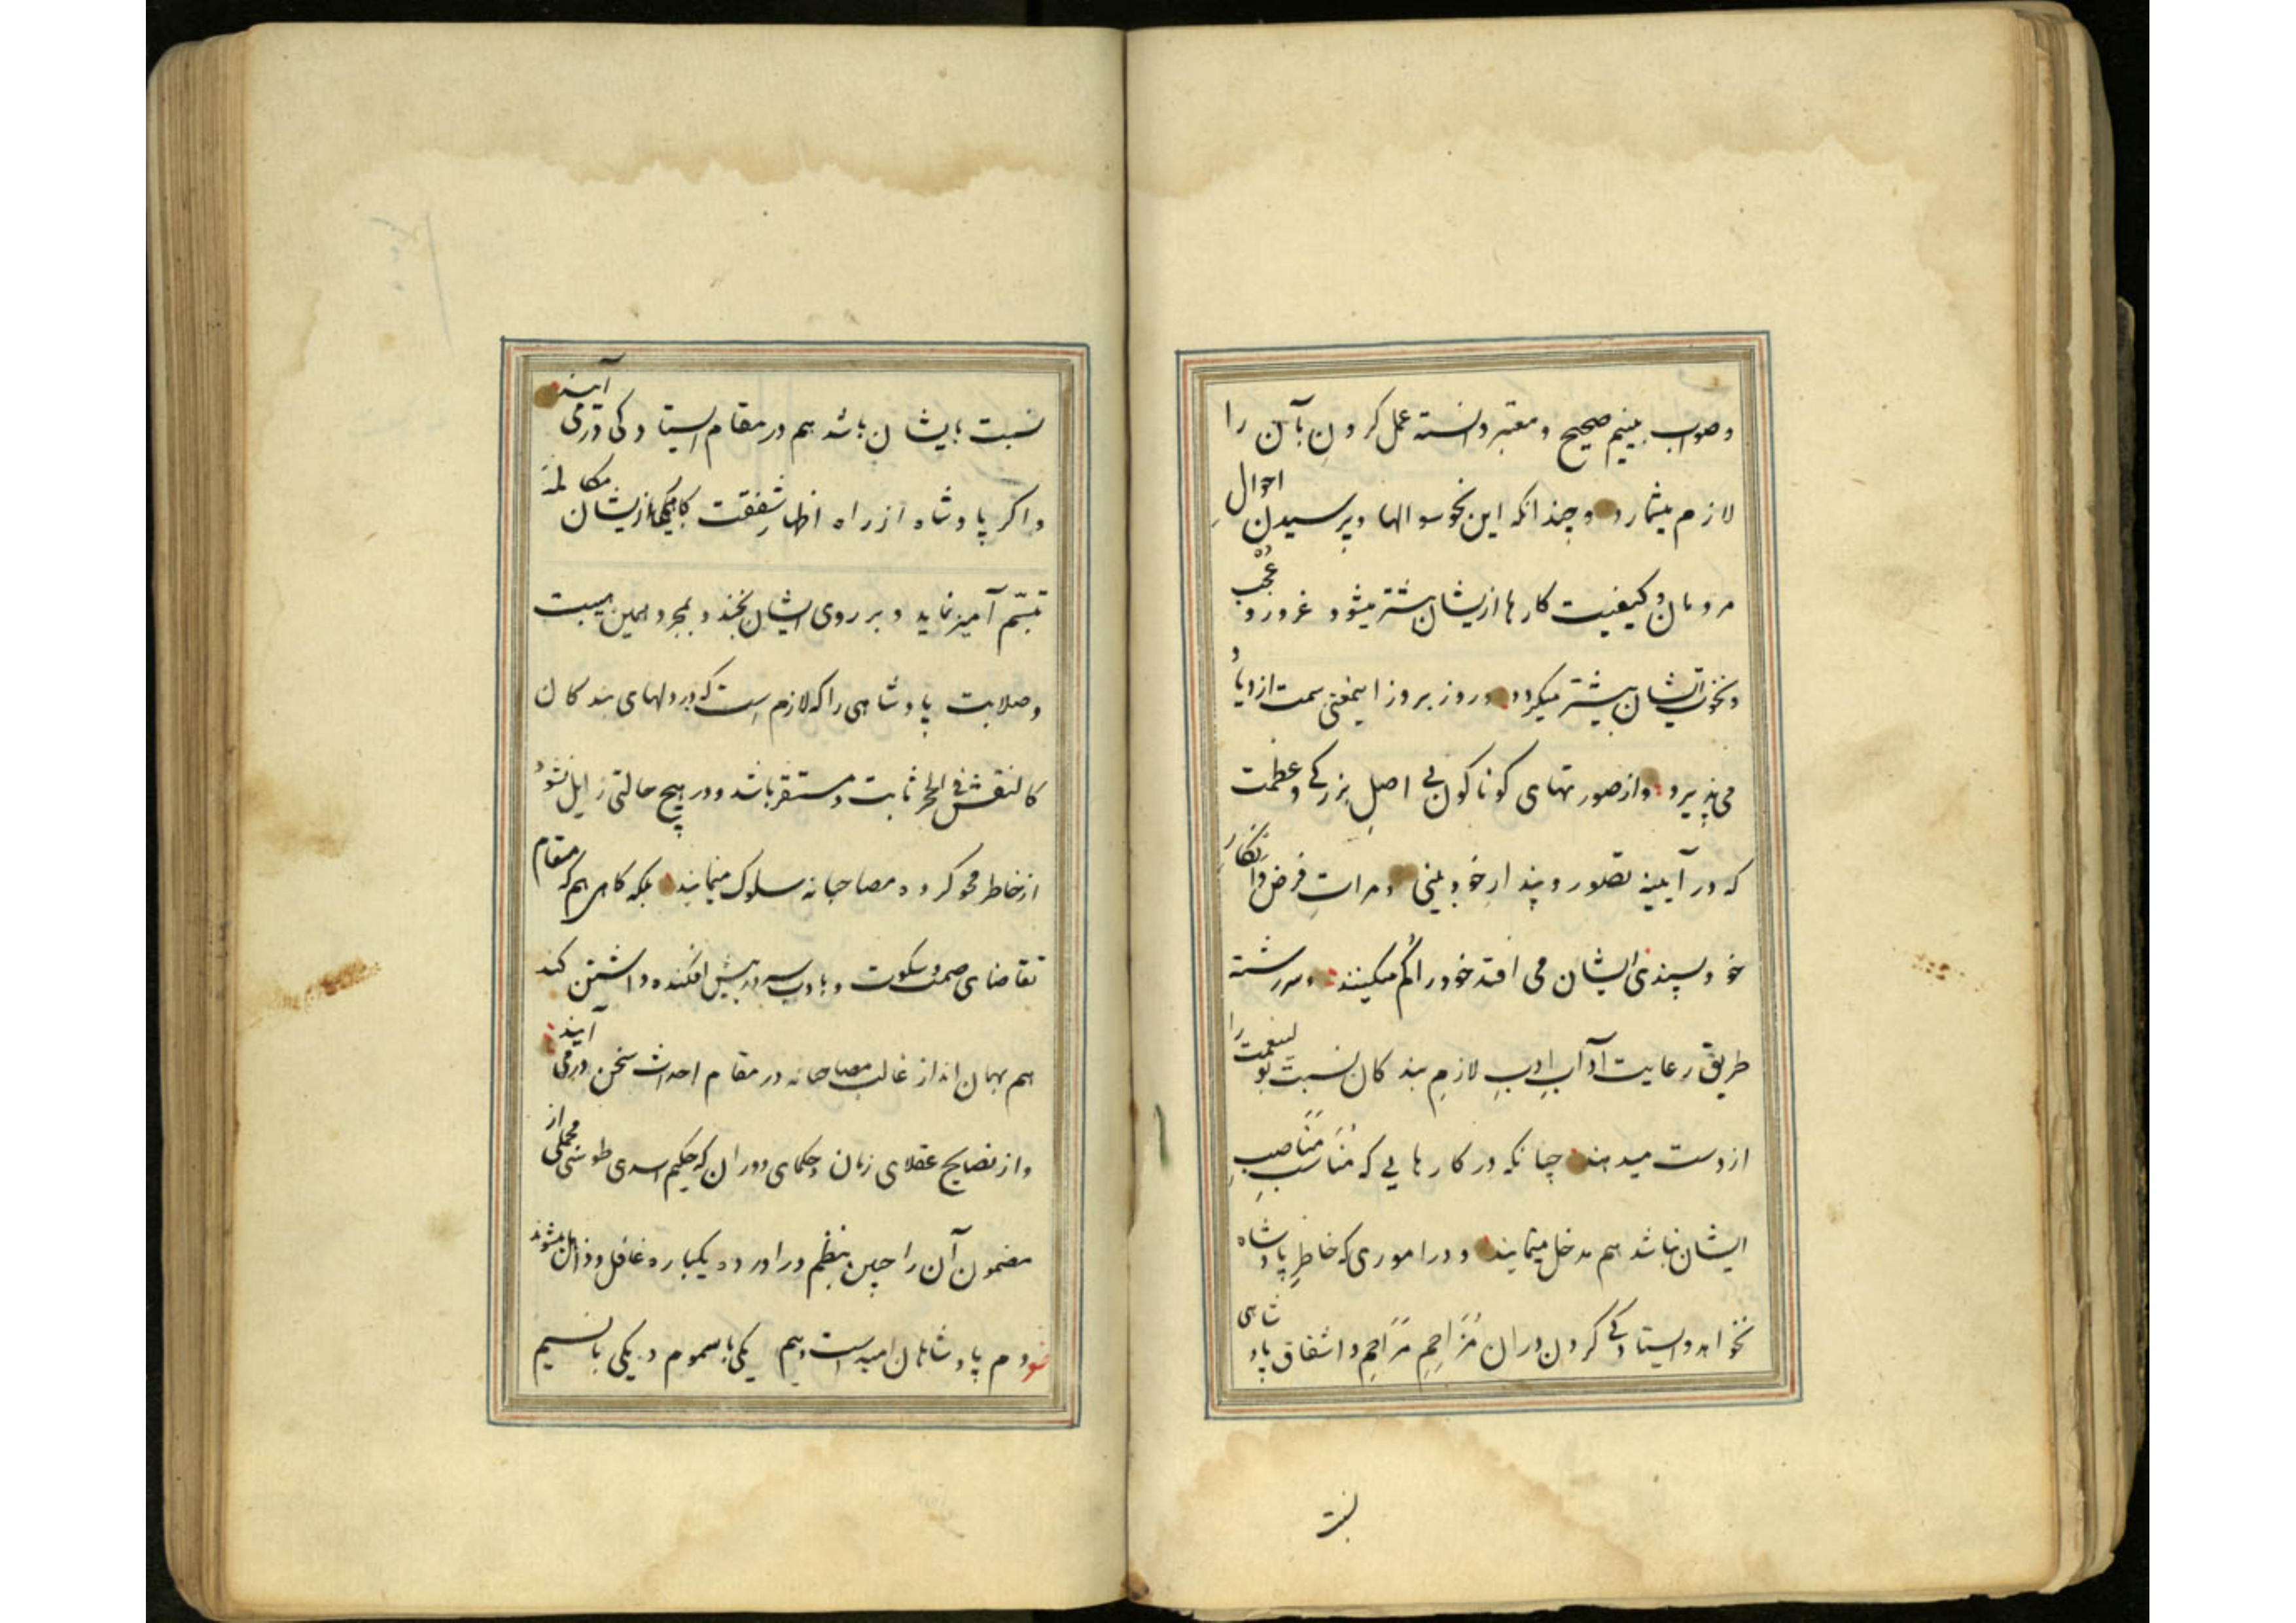 وصواب بینیم صحیح و معتبر دانسته عمل کردنِ بآن را
لازم میشمارد و چندانکه این نحو سوالها و پرسیدن احوالِ
مردمان و کیفیت کارها ازیشان بیشتر میشود غرور و عُجب
و نخوت ایشان بیشتر میکردد و روز بروز اینمعنی سمت ازدیاد
می پذیرد و از صورتهای کوناکون بی اصلِ بزرکی و عظمت
که در آیینه تصور و پندارِ خود بینی و مراتِ فرض و انکارِ
خود پسندی ایشان می افتد خود را کُم میکنند و سررشته
طریق رعایت آدابِ ادبِ لازمِ بندکان نسبت بولینعمت را
از دست میدهند چنانکه در کارهایی که مُناسبِ مَناصبِ
ایشان نباشد هم مدخل مینمایند و در اموری که خاطرِ پادشاه
نخواهد ایستادکی کردن دران مُزاحِم مَراحِم و اشفاق پادشاهی
نسبت
نسبت بایشان باشد هم در مقام ایستادکی درمی آیند
و اکر پادشاه از راه اظهار شفقت کاهی با ازیشان مکالمهٔ
تبسّم آمیز نماید و بر روی ایشان بخندد بمجرد همین هیبت
و صلابت پادشاهی را که لازم است که در دلهای بندکان
کالنقش فی الحجر ثابت و مستقر باشد و در هیچ حالتی زایل نشود
از خاطر محو کرده مصاحبانه سلوک مینمایند بلکه کاهی هم که مقام
تقاضای صمت و سکوت و با ادب سر در پیش افکنده داشتن کند
هم بهمان انداز غالب مصاحبانه در مقام احداث سخن درمی آیند
و از نصایح عقلای زمان و حکمای دوران که حکیم اسدی طوسی مجملی از
مضمون آن را چنین بنظم دراورده یکباره غافل و ذاهل میشوند
دم پادشاهان امیدست و بیم یکی باسموم و یکی بانسیم